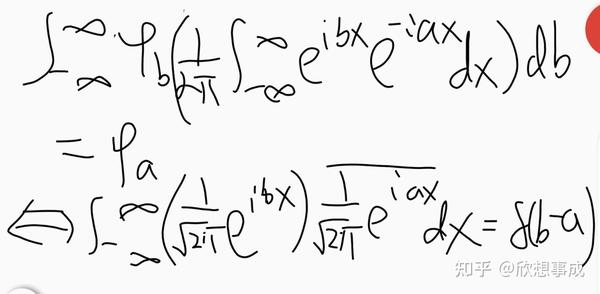 ∫_{-∞}^{∞} φ_b (1/2π ∫_{-∞}^{∞} e^{ibx} e^{-iax} dx) db
= φ_a
⟺ ∫_{-∞}^{∞} (1/√2π e^{ibx}) \overline{1/√2π e^{iax}} dx = δ(b-a)
知乎 @欣想事成